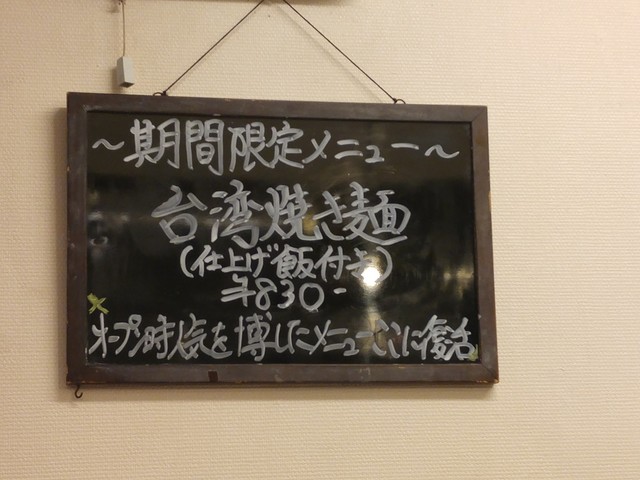 ～期間限定メニュー～
台湾焼き麺
(仕上げ飯付き)
¥830-
オープン時人気を博したメニューついに復活